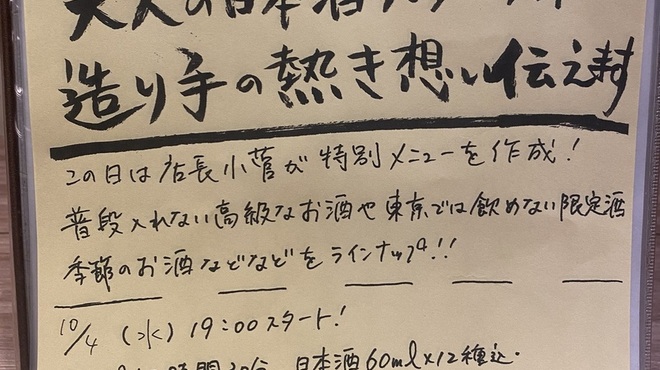 大人の日本酒
造り手の熱き想い伝えます
この日は店長小菅が特別メニューを作成!
普段入れない高級なお酒や東京では飲めない限定酒
季節のお酒などなどをラインナップ!!
10/4 (水) 19:00スタート!
時間30分 日本酒60ml×12種込